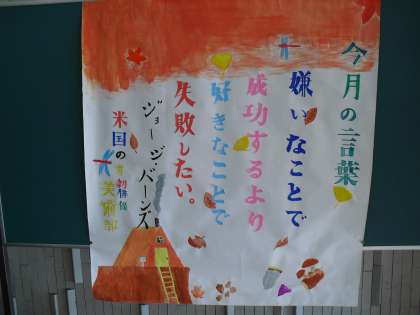 今月の言葉
嫌いなことで
成功するより
好きなことで
失敗したい。
ジョージ・バーンズ
米国の
俳優
美術部